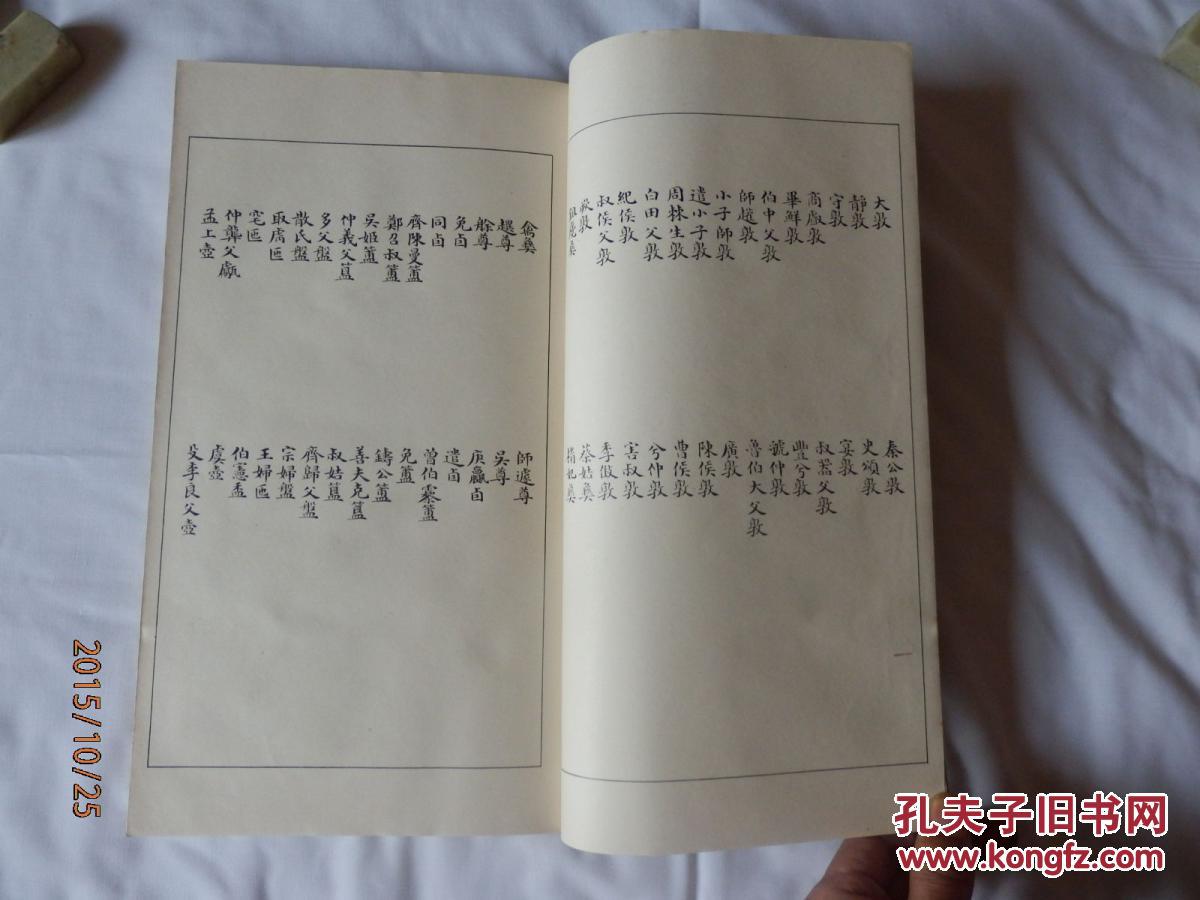 大敦
秦公敦
靜敦
史頌敦
守敦
宴敦
商戲敦
叔噩父敦
畢鮮敦
豐兮敦
伯中父敦
虢仲敦
師趛敦
魯伯大父敦
小子師敦
廣敦
遣小子敦
陳侯敦
周棘生敦
曹侯敦
白田父敦
兮仲敦
紀侯敦
害叔敦
叔侯父敦
季倣敦
敦
蔡姞彝
彝
彝
禽彝
師遽尊
趩尊
吳尊
艅尊
庚贏卣
免卣
遣卣
同卣
曾伯霥簠
齊陳曼簠
免簠
鄭召叔簠
鑄公簠
吳姬簠
善夫克簋
仲義父簋
叔姞簋
多父盤
齊歸父盤
散氏盤
宗婦盤
取膚匜
王婦匜
匜
伯憲盉
仲龏父甗
虞壺
孟上壺
殳季良父壺
2015/10/25
孔夫子旧书网
www.kongfz.com